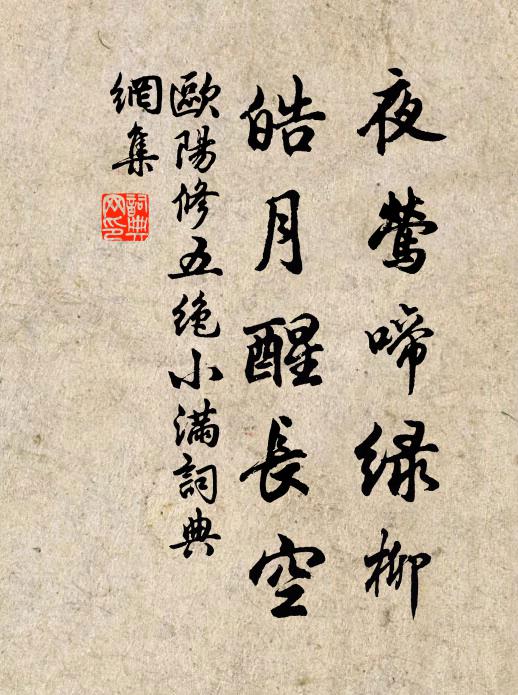 夜鶯啼绿柳
皓月醒長空
歐陽修五绝小满詞典
網集
詞典
网印